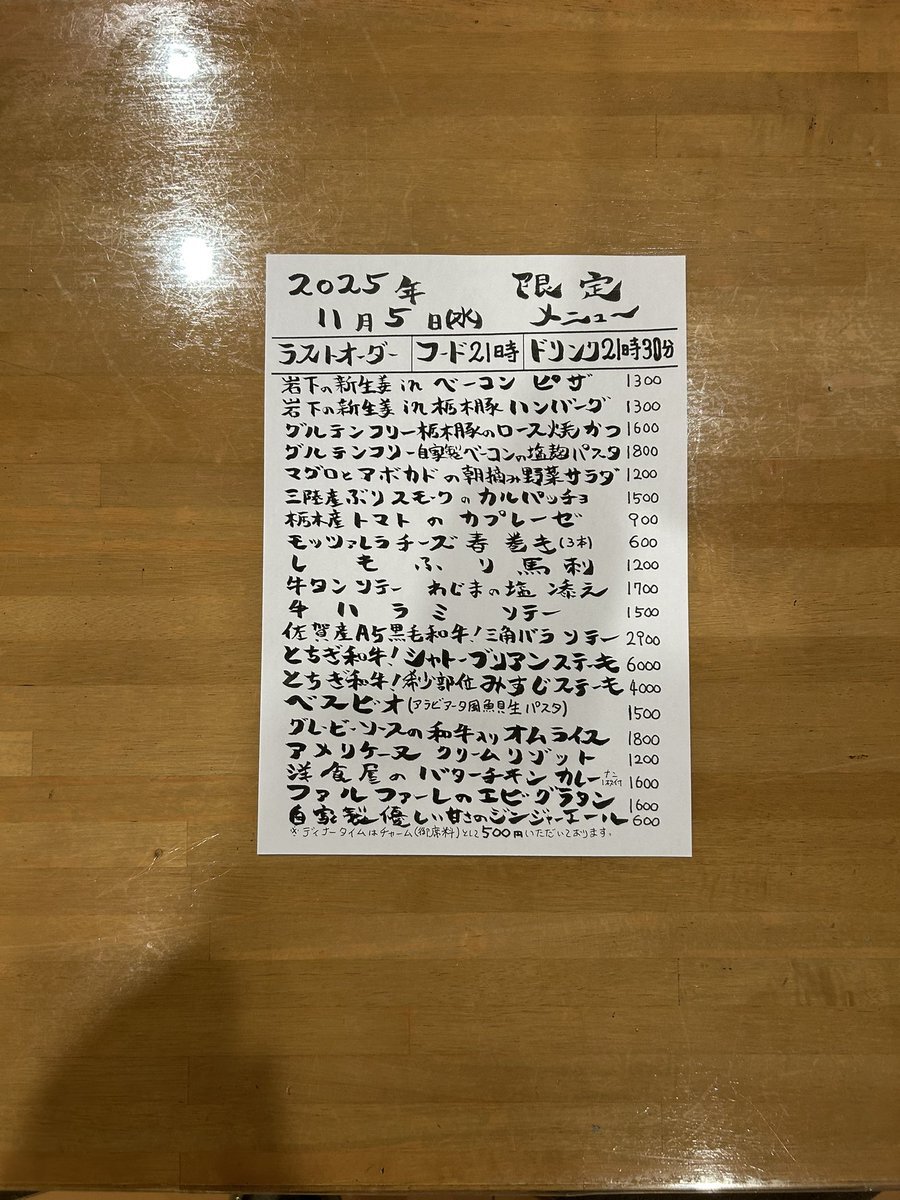 2025年 限定
11月5日(水) メニュー
ラストオーダー フード21時 ドリンク21時30分
岩下の新生姜in ベーコン ピザ 1300
岩下の新生姜in栃木豚ハンバーグ 1300
グルテンフリー栃木豚のロース焼かつ 1600
グルテンフリー自家製ベーコンの塩麹パスタ 1800
マグロとアボカドの朝摘み野菜サラダ 1200
三陸産ぶりスモークのカルパッチョ 1500
栃木産トマトのカプレーゼ 900
モッツァレラチーズ春巻き(3本) 600
しもふり馬刺 1200
牛タンソテー わじまの塩添え 1700
牛ハラミソテー 1500
佐賀産A5黒毛和牛!三角バラソテー 2900
とちぎ和牛!シャトーブリアンステーキ 6000
とちぎ和牛!希少部位みすじステーキ 4000
ベスビオ(アラビアータ風魚貝生パスタ) 1500
グレービーソースの和牛入りオムライス 1800
アメリケーヌクリームリゾット 1200
洋食屋のバターチキンカレー ナン1枚付 1600
ファルファーレのエビグラタン 1600
自家製優しい甘さのジンジャーエール 600
※ディナータイムはチャーム(御席料)として500円いただいております。